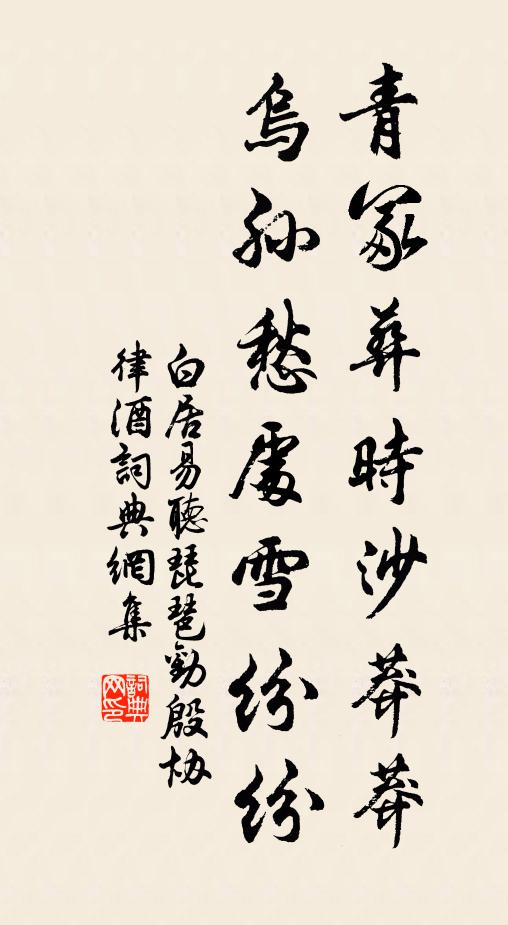 青冢葬時沙莽莽
烏孫愁處雪紛紛
白居易聽琵琶勸殷协
律酒詞典網集
詞典
网印